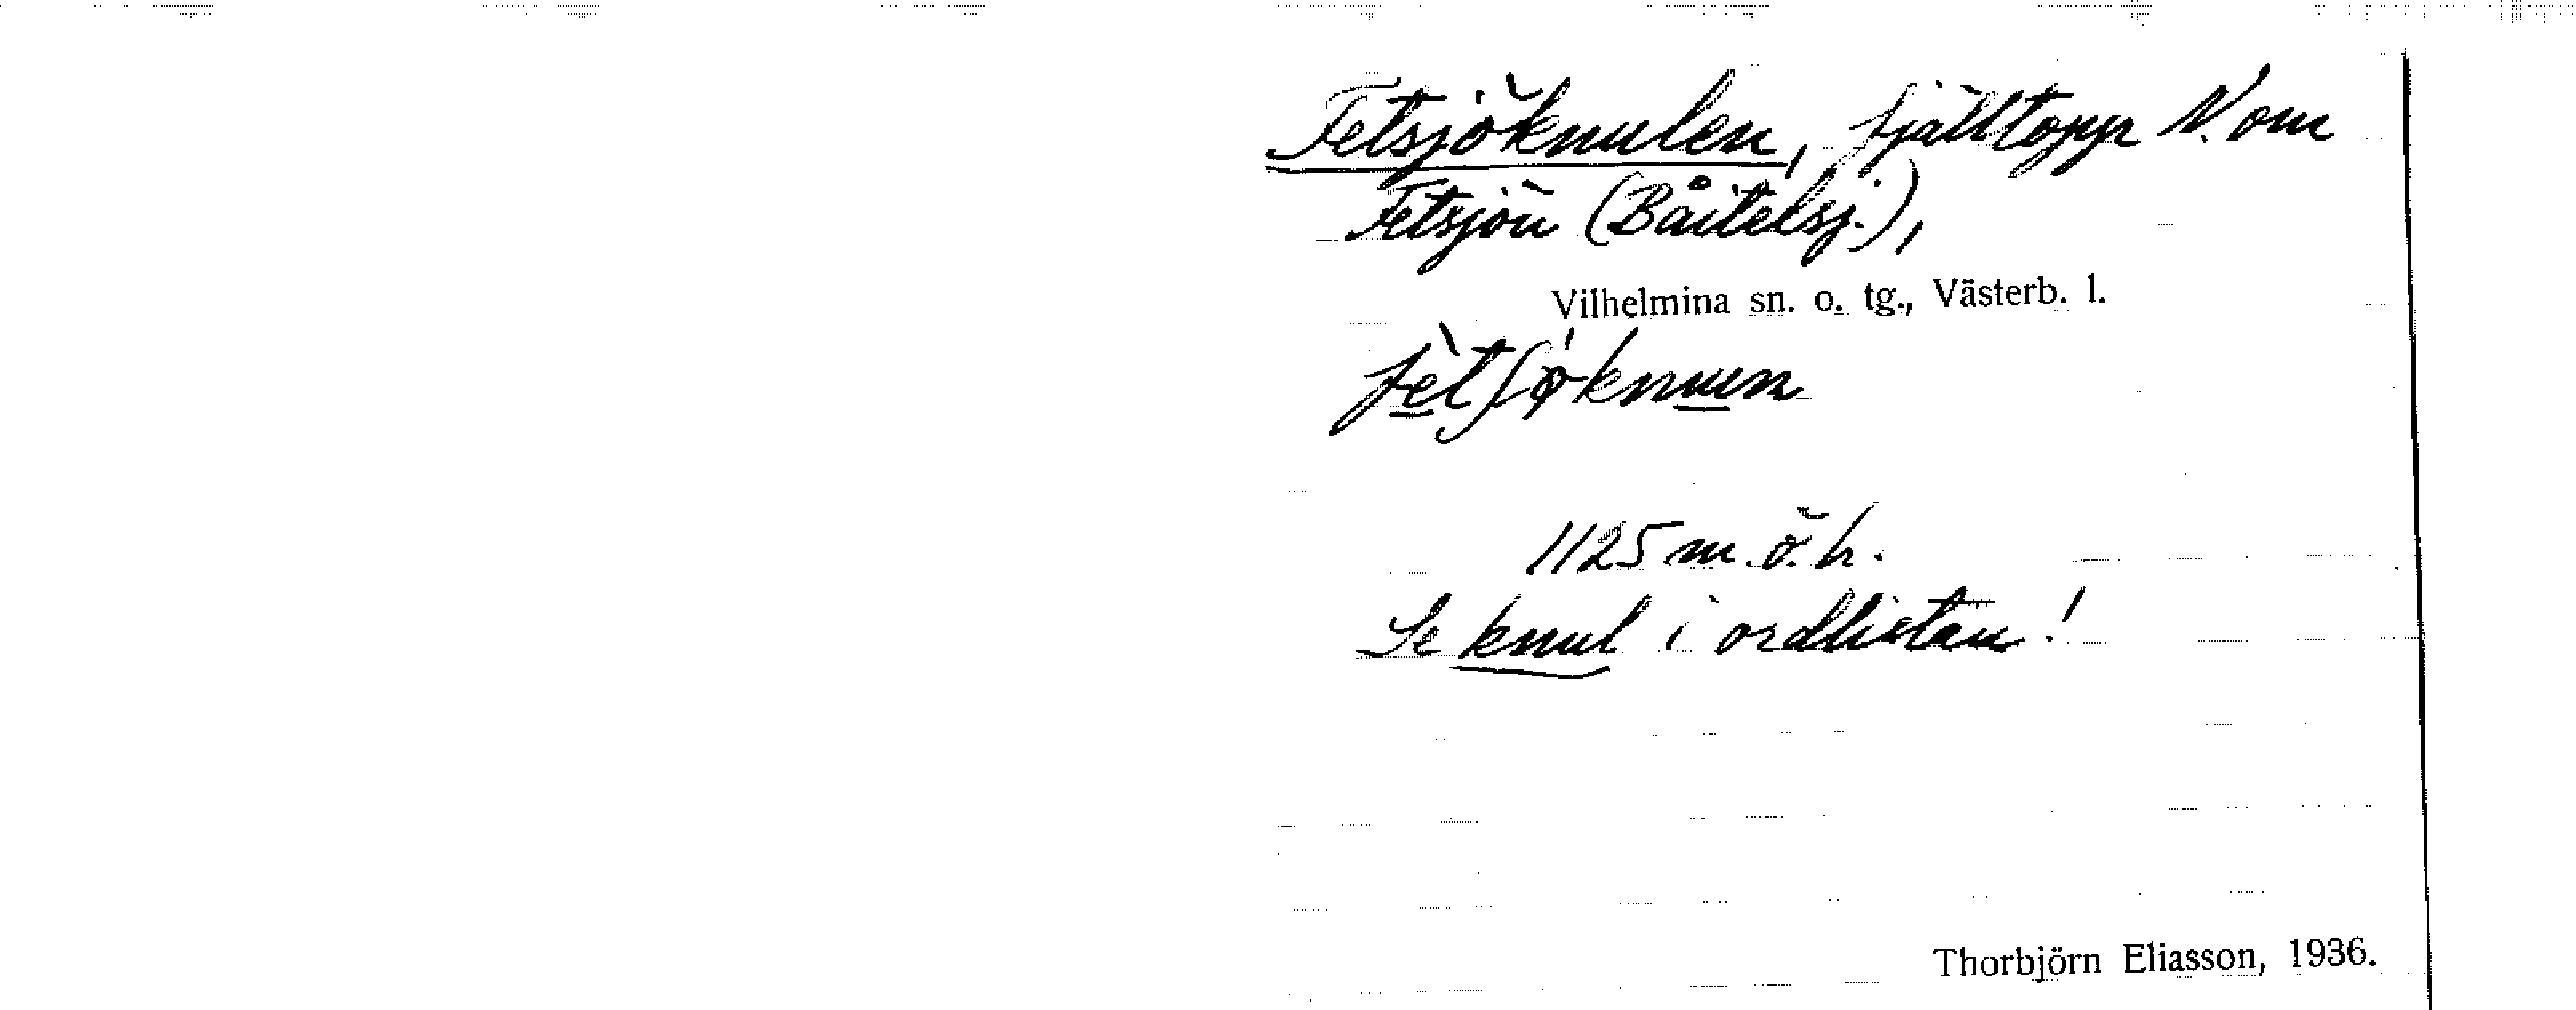 Fetsjöknulen, fjälltopp N. om
Fetsjön (Båitelsj.),
Vilhelmina sn. o. tg., Västerb. l.
fètʃøknuɯn
1125 m.ö.h.
Se knul i ordlistan!
Thorbjörn Eliasson, 1936.